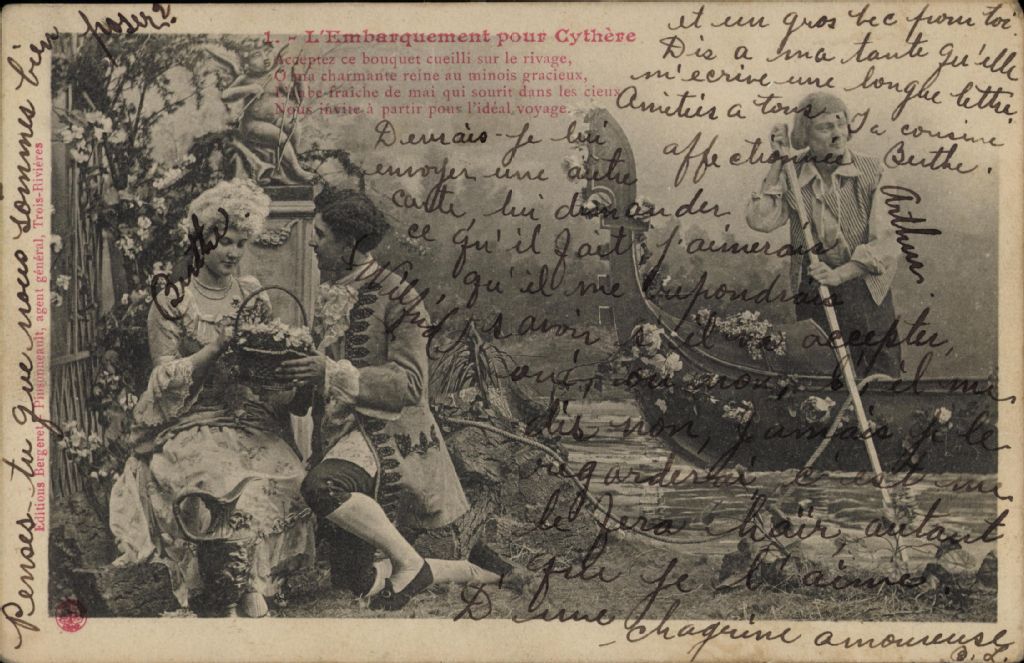 1. - L'Embarquement pour Cythère
Acceptez ce bouquet cueilli sur le rivage,
O ma charmante reine au minois gracieux,
L'aube fraîche de mai qui sourit dans les cieux
Nous invite à partir pour l'idéal voyage.
Editions Bergeret Pinsonneault, agent général, Trois-Rivières
Penses-tu que nous sommes bien
poser?
Berthe
Willy
Arthur.
Devrais-je lui
envoyer une autre
carte, lui demander
ce qu'il fait j'aimerais
qu'il me repondrais
savoir s'il va accepter,
oui, ou non, si il me
dis non, jamais je le
regarderai, c'est me
le fera haïr, autant
que je l'aime.
D'une
chagrine amoureuse
B. L.
et un gros bec pour toi.
Dis a ma tante qu'elle
m'ecrive une longue lettre.
Amities a tous Ta cousine
affectionnee Berthe.